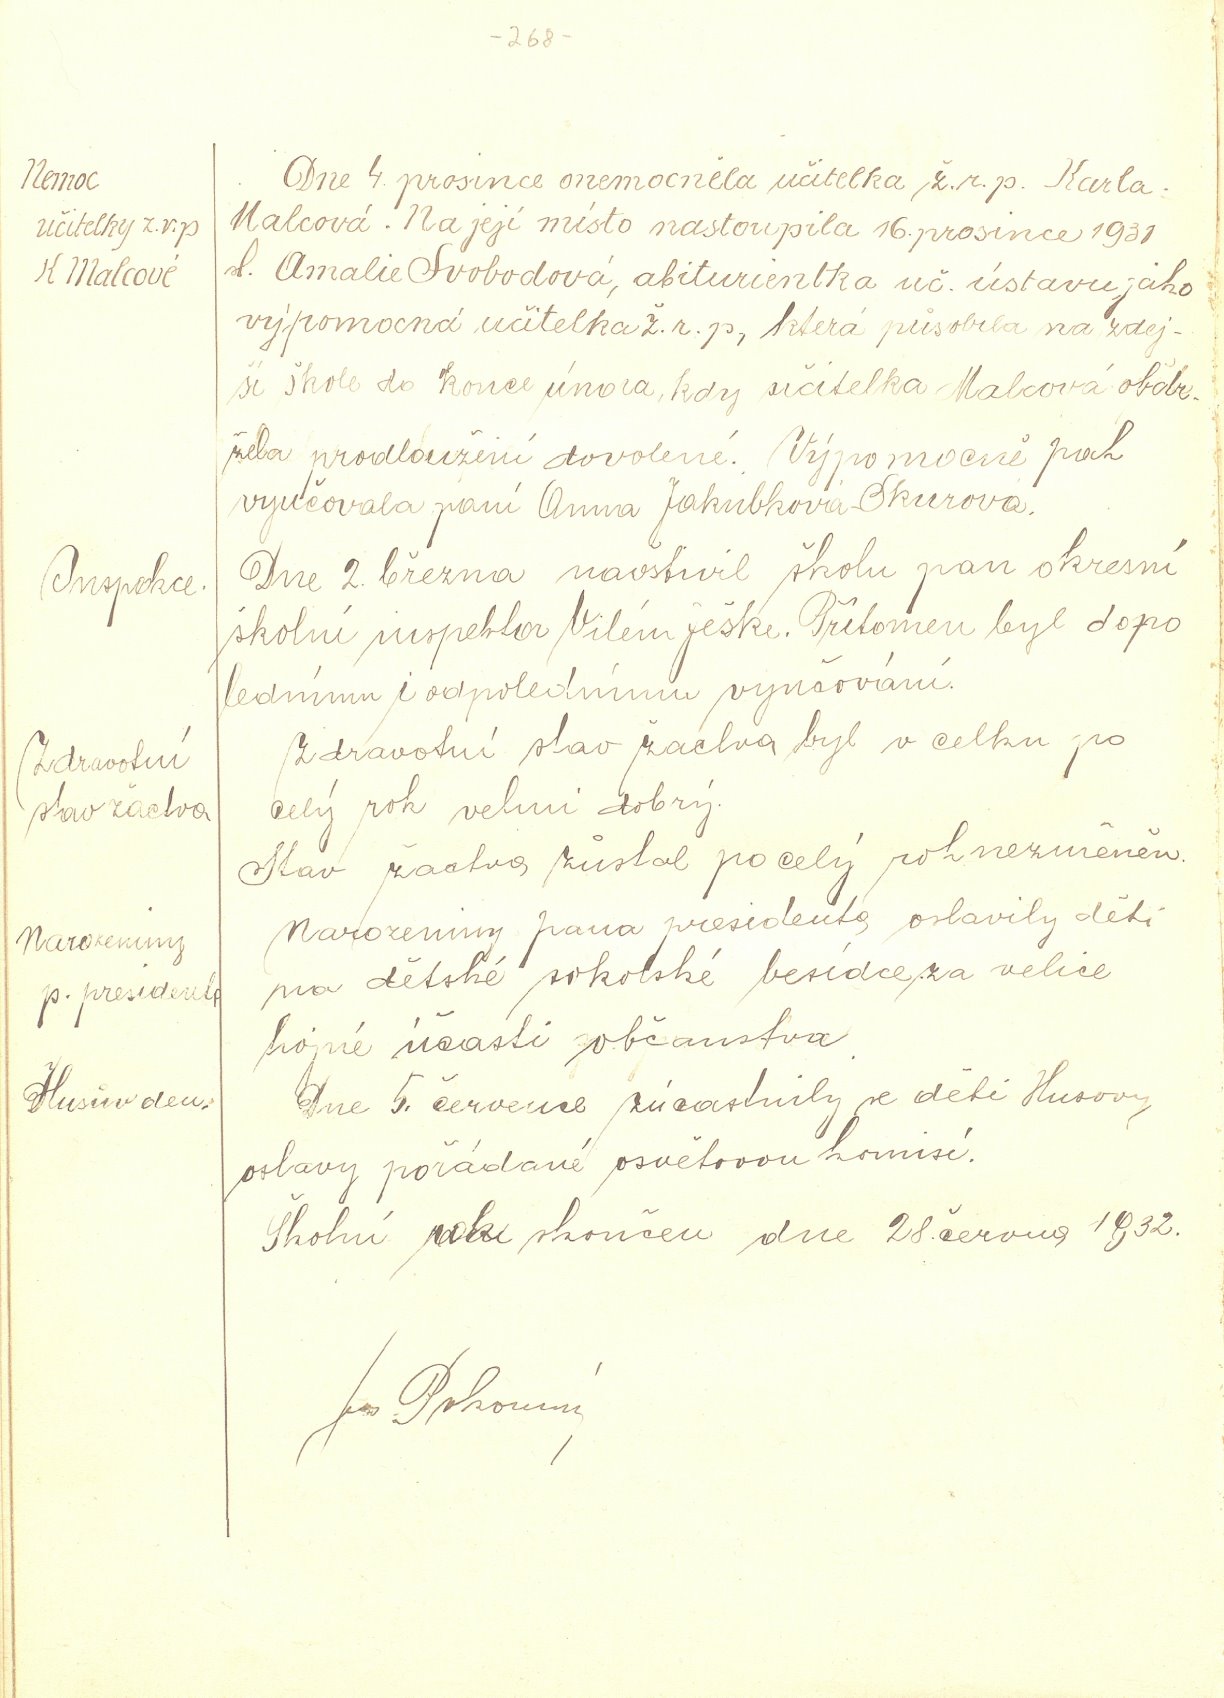 -268-
Nemoc
učitelky ž.r.p
K Malcové
Dne 4. prosince onemocněla učitelka ž.r.p. Karla
Malcová. Na její místo nastoupila 16. prosince 1931
sl. Amalie Svobodová, abiturientka uč. ústavu, jako
výpomocná učitelka ž.r.p., která působila na zdej-
ší škole do konce února, kdy učitelka Malcová obdr-
žela prodloužení dovolené. Výpomocně pak
vyučovala paní Anna Jakubková-Skurová.
Inspekce.
Dne 2. března navštívil školu pan okresní
školní inspektor Vilém Ješke. Přítomen byl dopo
lednímu i odpolednímu vyučování.
Zdravotní
stav žactva
Zdravotní stav žactva byl v celku po
celý rok velmi dobrý.
Stav žactva zůstal po celý rok nezměněn.
Narozeniny
p. presidenta
Narozeniny pana presidenta oslavily děti
na dětské sokolské besídce, za velice
hojné účasti občanstva.
Husův den.
Dne 5. července zúčastnily se děti Husovy
oslavy pořádané osvětovou komisí.
Školní rok skončen dne 28. června 1932.
Jos Pokorný